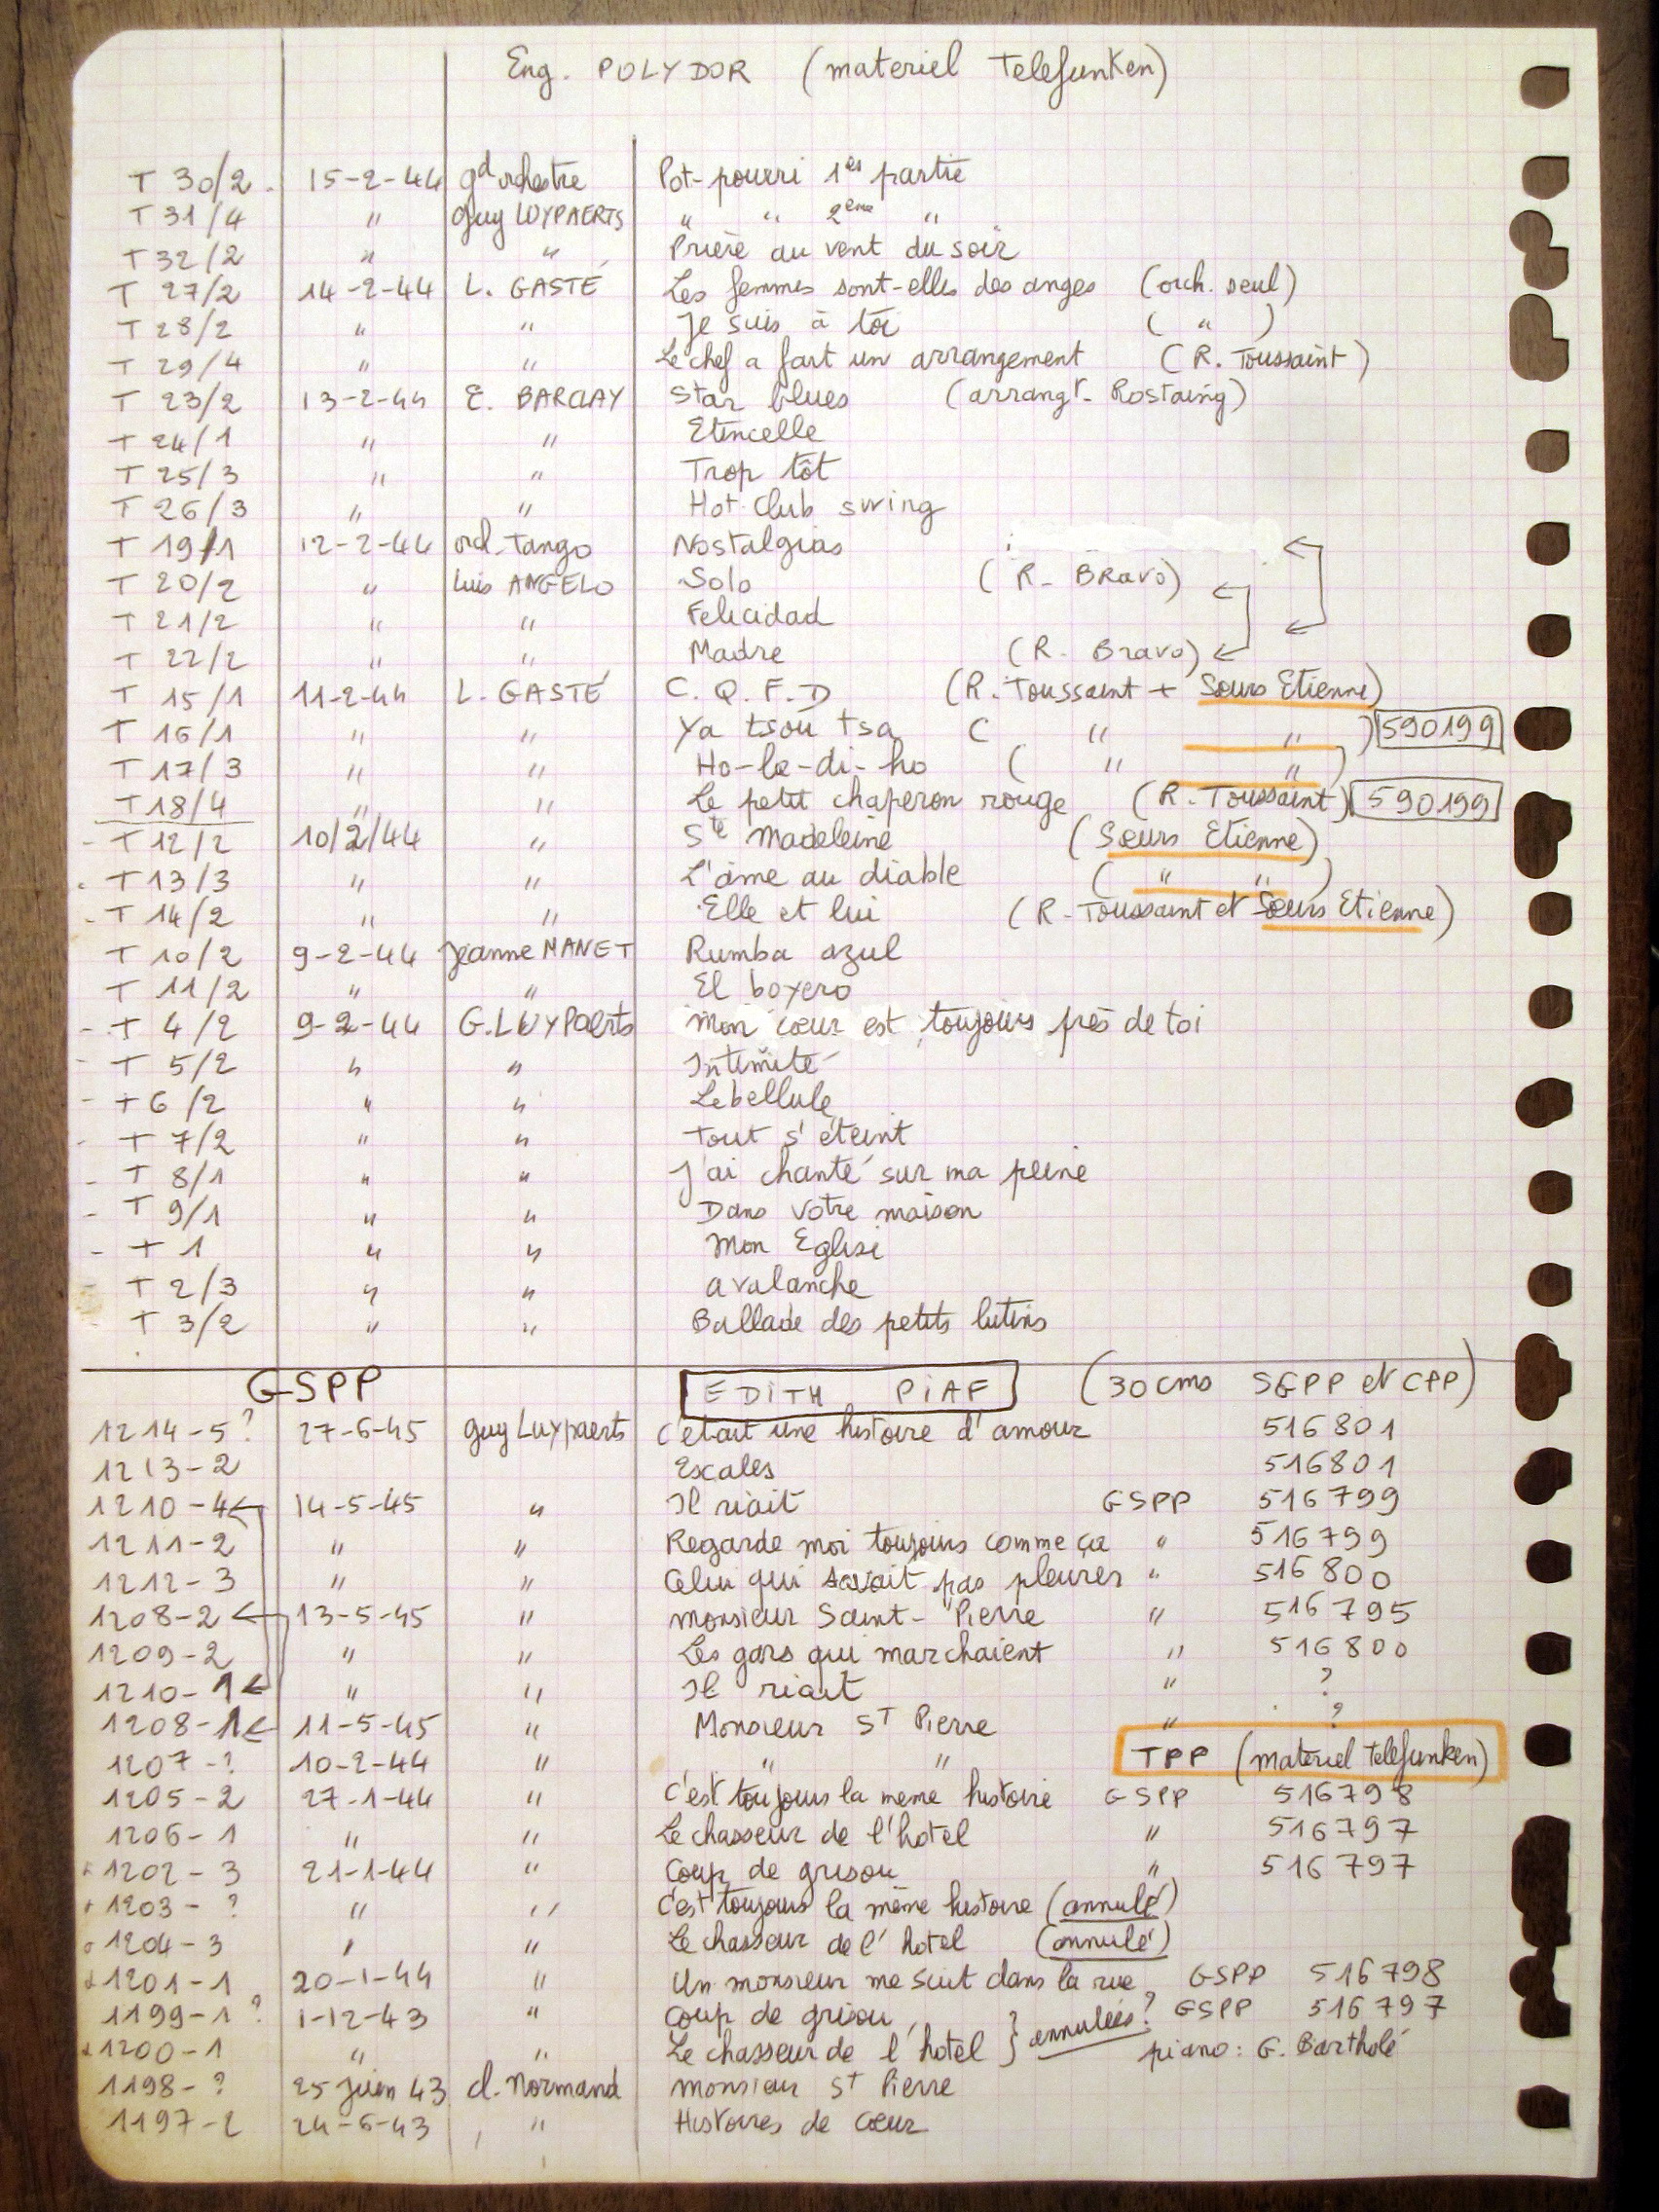 Eng. POLYDOR (materiel Telefunken)
T 30/2 . 15-2-44 gd orchestre Pot-pourri 1ère partie
T 31/4 " Guy LUYPAERTS " " 2ème "
T 32/2 " " Prière au vent du soir
T 27/2 14-2-44 L. GASTÉ Les femmes sont-elles des anges (orch. seul)
T 28/2 " " Je suis à toi ( " )
T 29/4 " " Le chef a fait un arrangement (R. Toussaint)
T 23/2 13-2-44 E. BARCLAY Star blues (arrangt. Rostaing)
T 24/1 " " Etincelle
T 25/3 " " Trop tôt
T 26/3 " " Hot Club swing
T 19/1 12-2-44 orch. Tango Nostalgias
T 20/2 " Luis ANGELO Solo (R. BRavo)
T 21/2 " " Felicidad
T 22/2 " " Madre (R. Bravo)
T 15/1 11-2-44 L. GASTÉ C. Q. F. D (R. Toussaint + Sœurs Etienne)
T 16/1 " " Ya tsou tsa ( " " ) 590199
T 17/3 " " Ho-le-di-ho ( " " )
T 18/4 " " Le petit chaperon rouge (R. Toussaint) 590199
- T 12/2 10/2/44 " Ste Madeleine (Sœurs Etienne)
. T 13/3 " " L'âme au diable ( " " )
- T 14/2 " " Elle et lui (R. Toussaint et Sœurs Etienne)
T 10/2 9-2-44 Jeanne MANET Rumba azul
T 11/2 " " El boyero
- T 4/2 9-2-44 G. LUYPaerts Mon cœur est toujours près de toi
- T 5/2 " " Intimité
- T 6/2 " " Lebellule
- T 7/2 " " Tout s'éteint
- T 8/1 " " J'ai chanté sur ma peine
- T 9/1 " " Dans votre maison
- T 1 " " Mon Eglise
- T 2/3 " " avalanche
- T 3/2 " " Ballade des petits lutins
GSPP EDITH PIAF (30 cms SGPP et CPP)
1214-5? 27-6-45 Guy Luypaerts C'était une histoire d'amour 516801
1213-2 Escales 516801
1210-4 14-5-45 " Il riait GSPP 516799
1211-2 " " Regarde moi toujours comme ça " 516799
1212-3 " " Celui qui savait pas pleurer " 516800
1208-2 13-5-45 " Monsieur Saint-Pierre " 516795
1209-2 " " Les gars qui marchaient " 516800
1210-1 " " Il riait " ?
1208-1 11-5-45 " Monsieur ST Pierre " ?
1207-? 10-2-44 " " " TPP (materiel telefunken)
1205-2 27-1-44 " C'est toujours la meme histoire GSPP 516798
1206-1 " " Le chasseur de l'hotel " 516797
1202-3 21-1-44 " Coup de grisou " 516797
1203-? " " C'est toujours la même histoire (annulé)
1204-3 " " Le chasseur de l'hotel (annulé)
1201-1 20-1-44 " Un monsieur me suit dans la rue GSPP 516798
1199-1? 1-12-43 " Coup de grisou } annulées? GSPP 516797
1200-1 " " Le chasseur de l'hotel piano: G. Bartholé
1198-? 25 Juin 43 cl. Normand Monsieur ST Pierre
1197-2 24-6-43 " Histoires de cœur